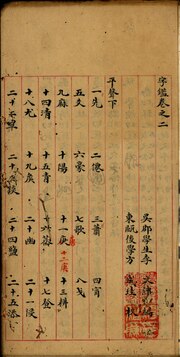 字鑑卷之二
吳郡學生李文仲編
東甌後學方成珪校
平聲下
一先 二僊 三蕭 四宵
五爻 六豪 七歌 八戈
九麻 十陽 十一 十二庚 十三耕
十四清 十五青 十六蒸 十七登
十八尤 十九侯 二十幽 二十一侵
二十二覃 二十三談 二十四鹽 二十五添